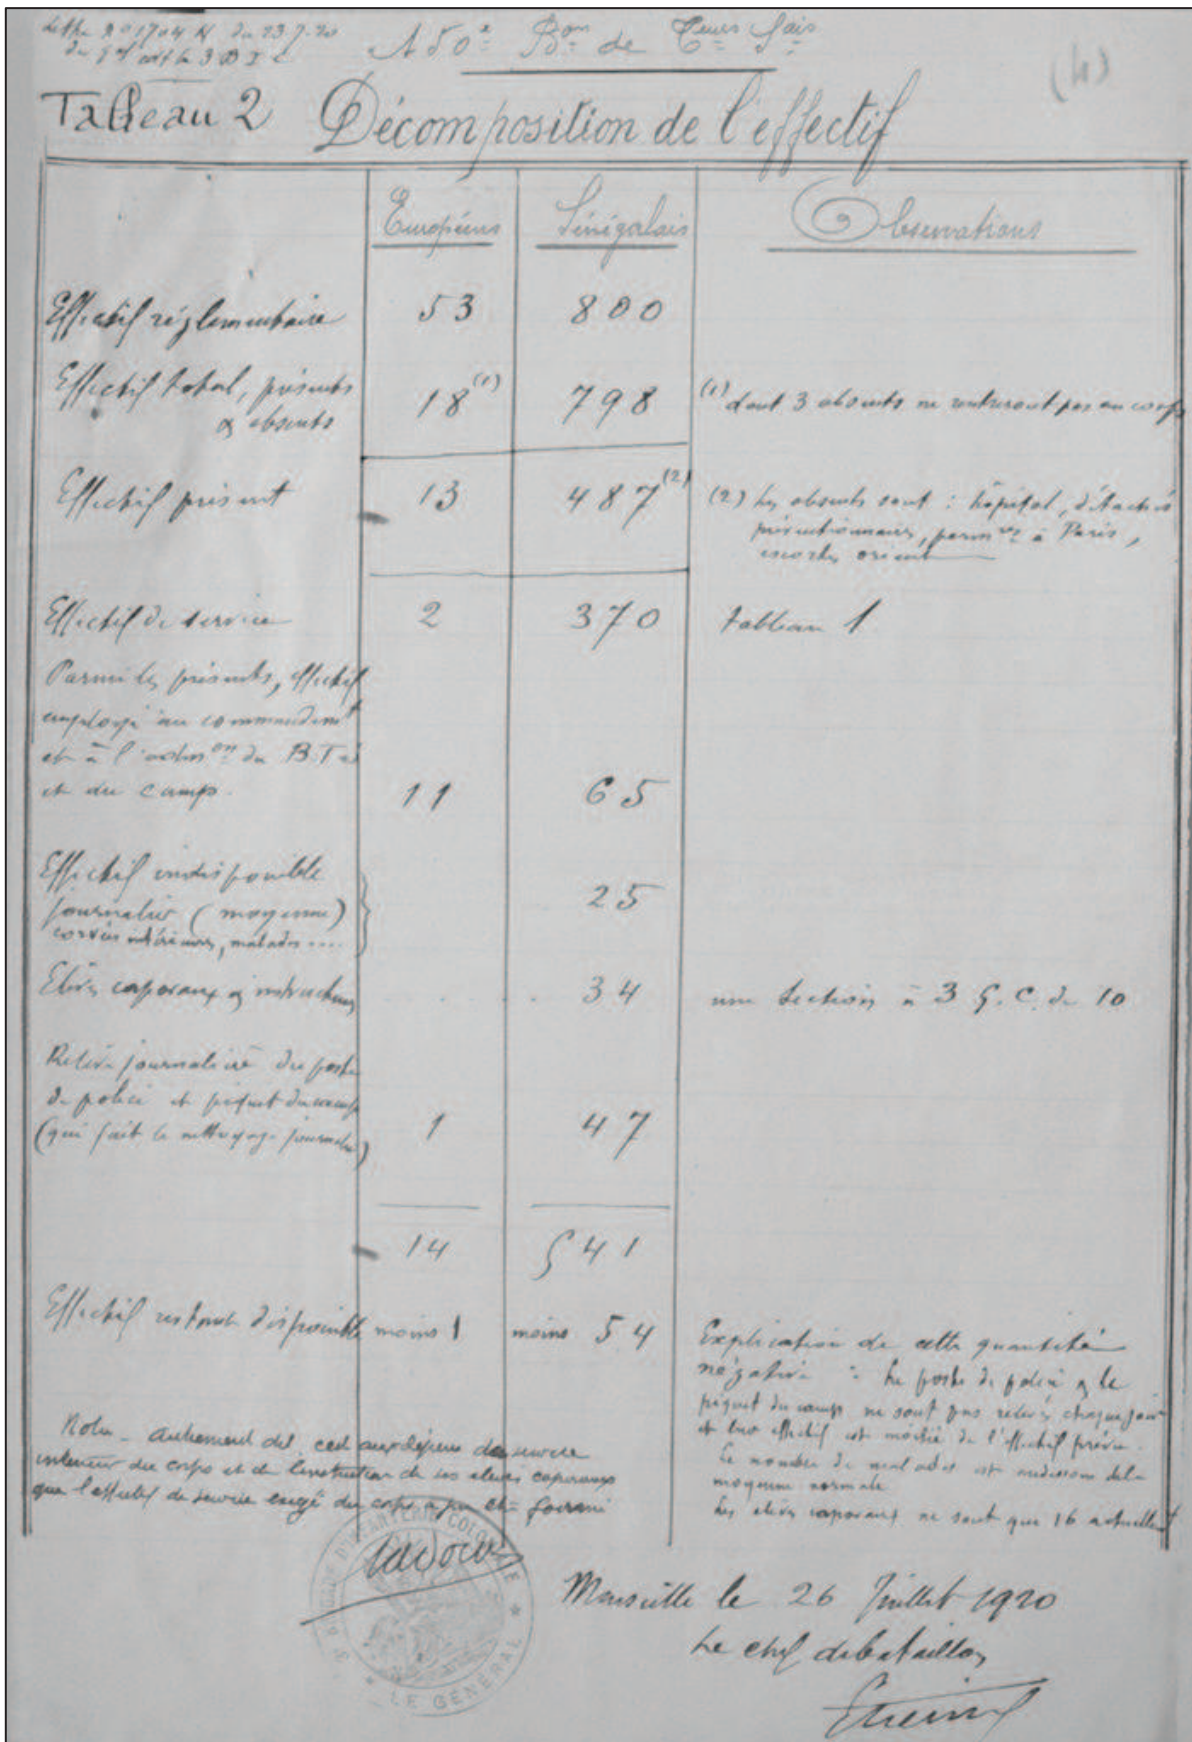 Lettre no 1704 N du 23.7.20
du Gal cdt la 3 B I C
150e Bon de Teurs Sais
(4)
Tableau 2 Décomposition de l'effectif
Européens Sénégalais Observations
Effectif réglementaire 53 800
Effectif total, présents 18 (1) 798 (1) dont 3 absents ne rentreront pas au corps
& absents
Effectif présent 13 487 (2) (2) Les absents sont : hôpital, détachés
permres à Paris,
escortes orient
Effectif de service 2 370 tableau 1
Parmi les présents, effectif
employé au commandemt
et à l'admon du B.T.S
et du camp. 11 65
Effectif indisponible
journalier (moyenne) 25
corvées intérieures, malades ....
Elèves caporaux & instructeurs 34 une section à 3 G.C. de 10
Relève journalière du poste
de police et piquet du camp
(qui fait le nettoyage journalier) 1 47
14 541
Effectif restant disponible moins 1 moins 54
Explication de cette quantité
négative : Le poste de police & le
piquet du camp ne sont pas relevés chaque jour
et leur effectif est moitié de l'effectif prévu.
Le nombre de malades est au dessous de la
moyenne normale
Les élèves caporaux ne sont que 16 actuellement
Note - autrement dit c'est aux dépens du service
interieur du corps et de l'instruction de ses élèves caporaux
que l'effectif de service exigé du corps a pu être fourni
D'INFANTERIE COLONIALE
LE GÉNÉRAL
Marseille le 26 Juillet 1920
Le chef de bataillon